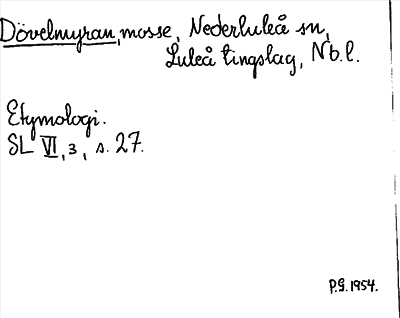 Dövelmyran, mosse, Nederluleå sn,
Luleå tingslag, Nb.l.
Etymologi.
SL VI, 3, s. 27.
P.G. 1954.